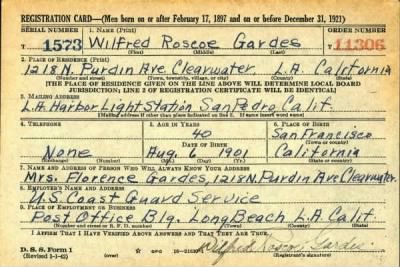 REGISTRATION CARD—(Men born on or after February 17, 1897 and on or before December 31, 1921)
SERIAL NUMBER 1. NAME (Print) ORDER NUMBER
T 1573 Wilfred Roscoe Gardes 11306
(First) (Middle) (Last)
2. PLACE OF RESIDENCE (Print)
1218 N. Purdin Ave Clearwater L.A. California
(Number and street) (Town, township, village, or city) (County) (State)
[THE PLACE OF RESIDENCE GIVEN ON THE LINE ABOVE WILL DETERMINE LOCAL BOARD
JURISDICTION; LINE 2 OF REGISTRATION CERTIFICATE WILL BE IDENTICAL]
3. MAILING ADDRESS
L.A. Harbor Light Station San Pedro Calif.
[Mailing address if other than place indicated on line 2. If same insert word same]
4. TELEPHONE 5. AGE IN YEARS 6. PLACE OF BIRTH
40 San Francisco
DATE OF BIRTH (Town or county)
None Aug. 6 1901 California
(Exchange) (Number) (Mo.) (Day) (Yr.) (State or country)
7. NAME AND ADDRESS OF PERSON WHO WILL ALWAYS KNOW YOUR ADDRESS
Mrs. Florence Gardes, 1218 N. Purdin Ave Clearwater.
8. EMPLOYER'S NAME AND ADDRESS
U.S. Coast Guard Service
9. PLACE OF EMPLOYMENT OR BUSINESS
Post Office Blg. Long Beach L.A. Calif.
(Number and street or R. F. D. number) (Town) (County) (State)
I AFFIRM THAT I HAVE VERIFIED ABOVE ANSWERS AND THAT THEY ARE TRUE.
D. S. S. Form 1
(Revised 1-1-42) (over) Wilfred Roscoe Gardes